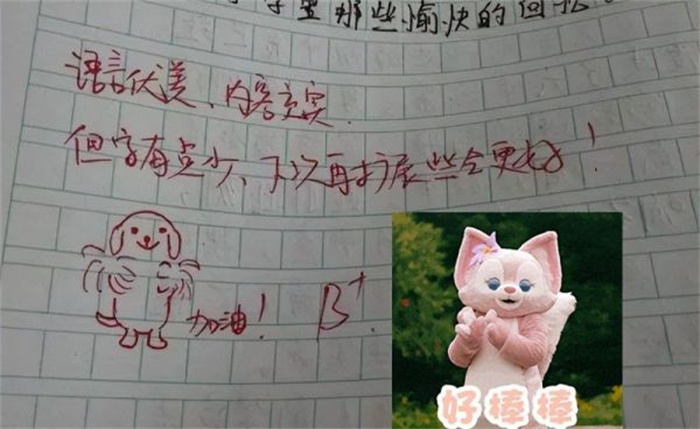 那些愉快的回忆
语言优美、内容充实.
但字有点少、下次再扩展些会更好!
加油! B+.
好棒棒